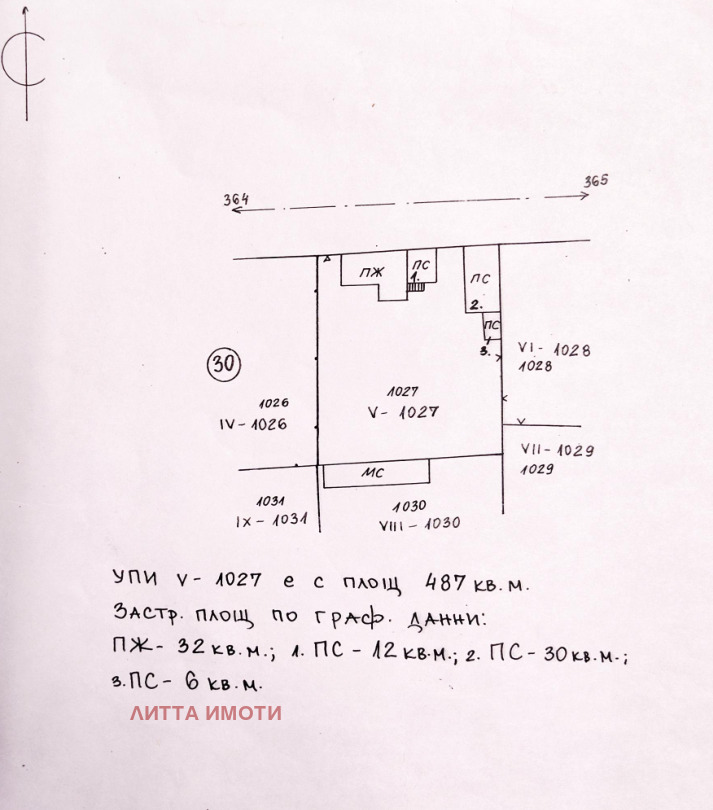 364
365
ПЖ
ПС
1.
ПС
2.
ПС
3.
30
VI - 1028
1028
1027
V - 1027
1026
IV - 1026
VII - 1029
1029
МС
1031
IX - 1031
1030
VIII - 1030
УПИ V - 1027 е с площ 487 кв.м.
Застр. площ по граф. данни:
ПЖ - 32 кв.м.; 1. ПС - 12 кв.м.; 2. ПС - 30 кв.м.;
3. ПС - 6 кв.м.
ЛИТТА ИМОТИ